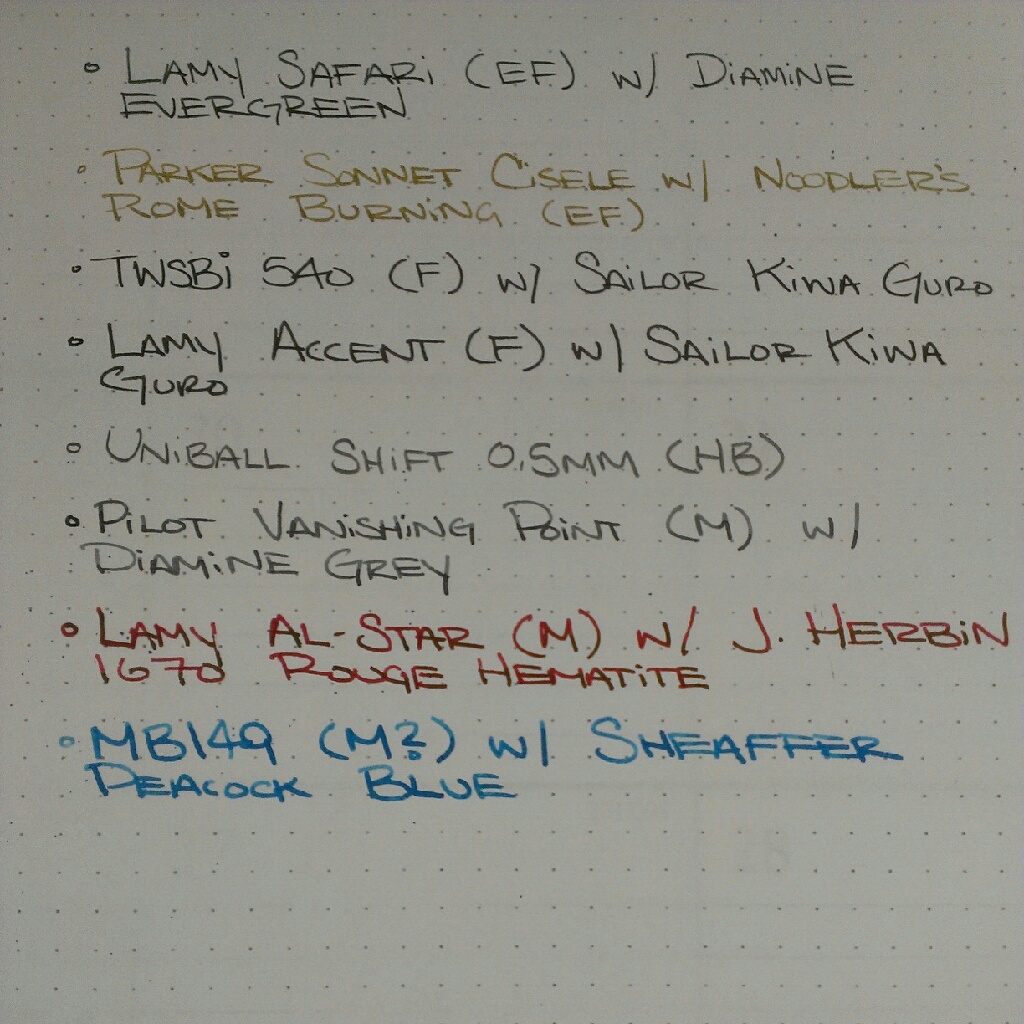 • LAMY SAFARi (EF) w/ DiAMiNE
EVERGREEN
• PARKER SONNET CiSELE w/ NOODLER'S
ROME BURNiNG (EF)
• TWSBi 540 (F) w/ SAiLOR KiWA GURO
• LAMY ACCENT (F) w/ SAiLOR KiWA
GURO
• UNiBALL SHiFT 0.5MM (HB)
• PiLOT VANiSHiNG POiNT (M) w/
DiAMiNE GREY
• LAMY AL-STAR (M) w/ J. HERBiN
1670 ROUGE HEMATiTE
• MB149 (M?) w/ SHEAFFER
PEACOCK BLUE